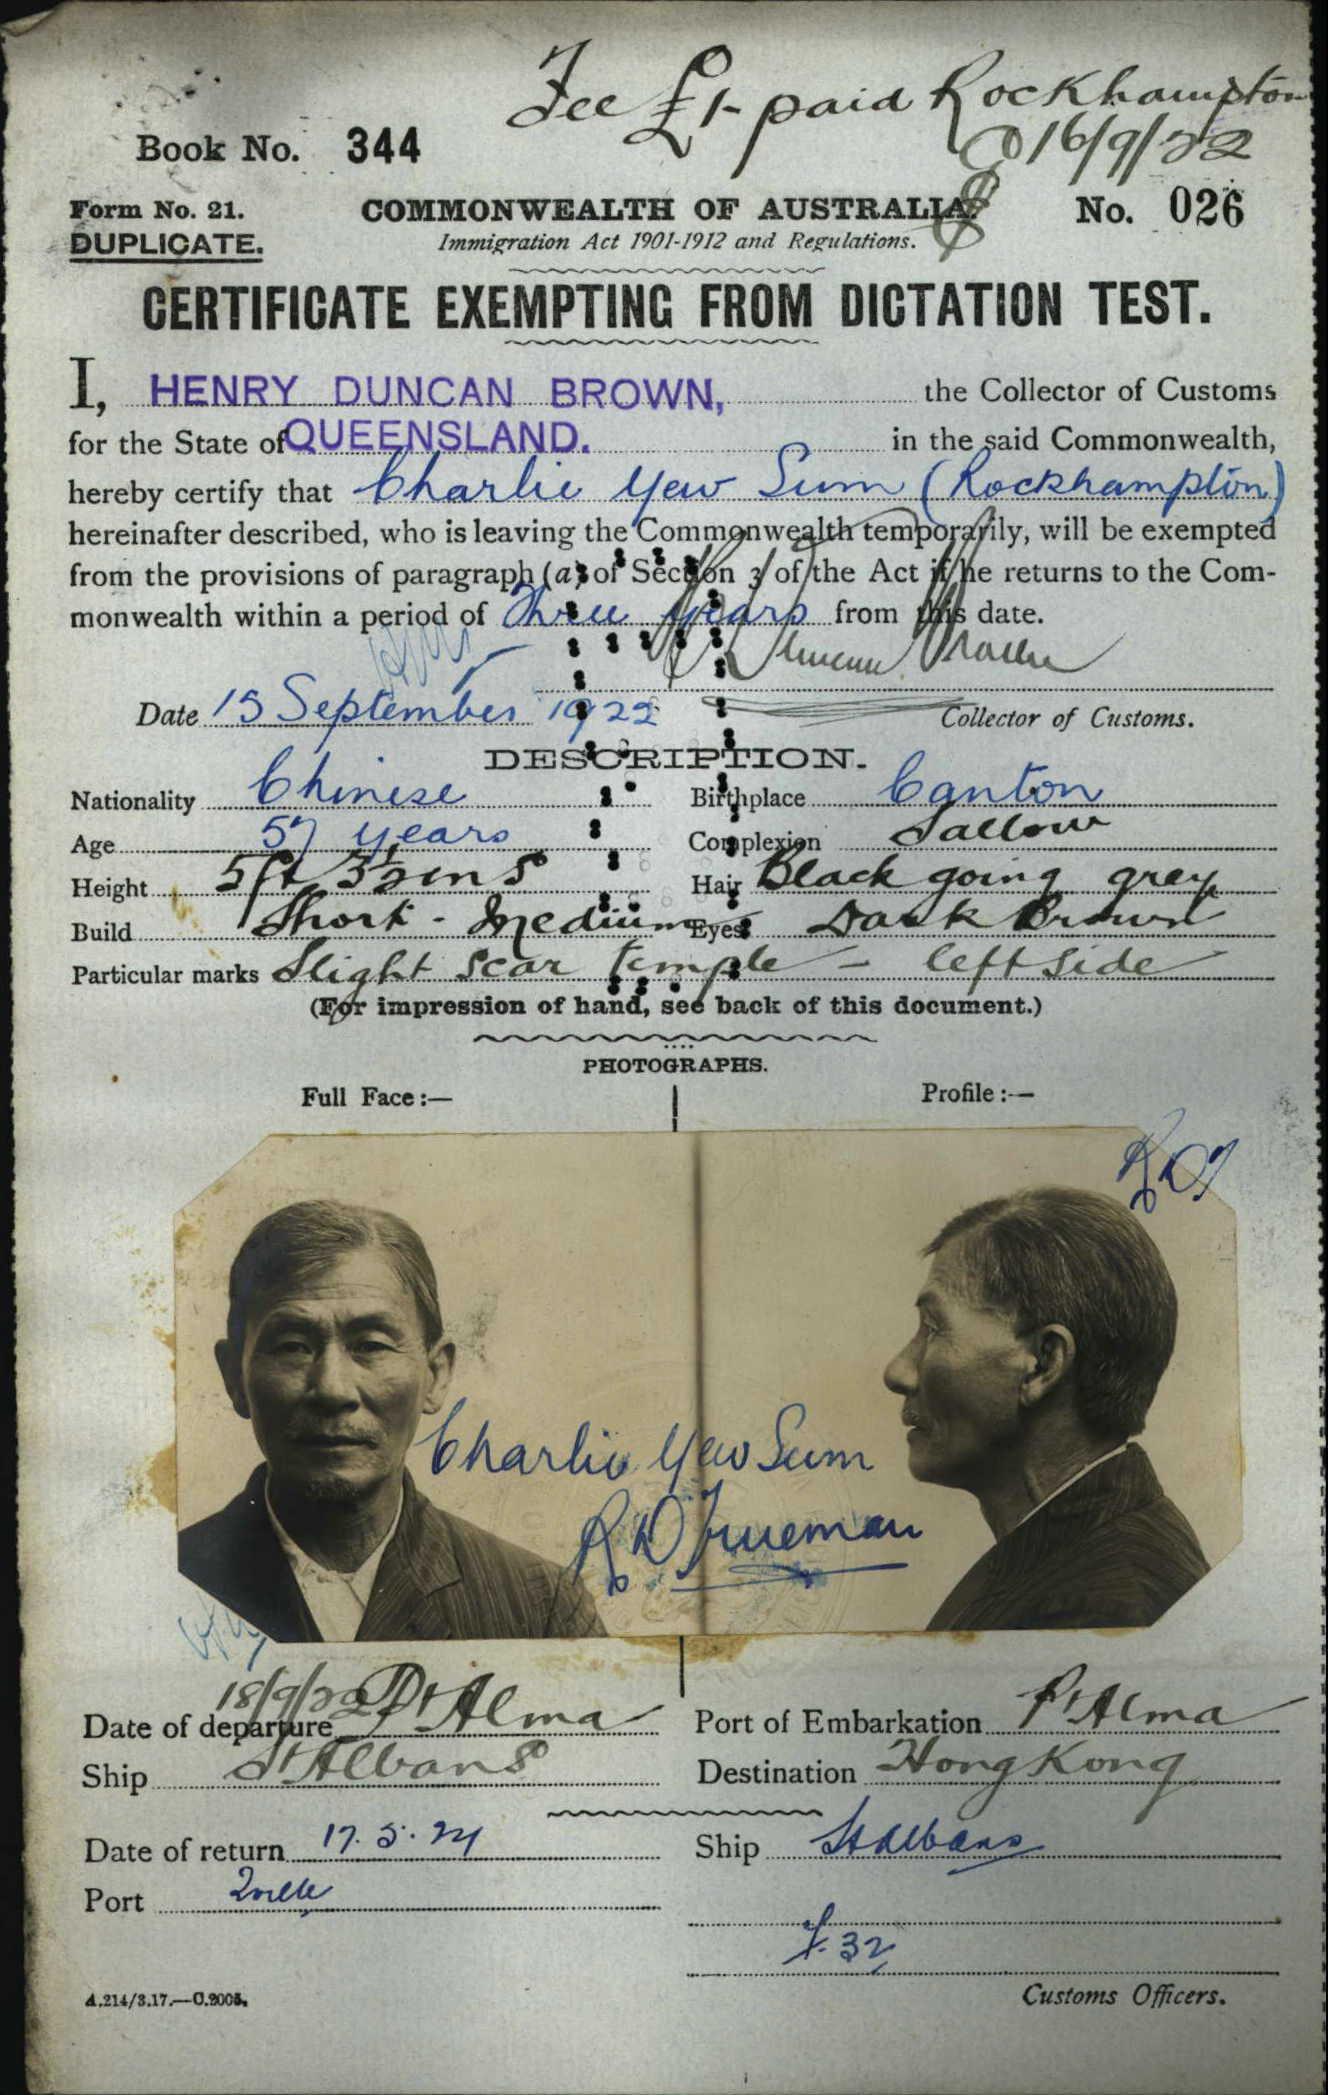 Fee £1- paid Rockhampton
16/9/22
Book No. 344
Form No. 21. COMMONWEALTH OF AUSTRALIA. No. 026
DUPLICATE. Immigration Act 1901-1912 and Regulations.
CERTIFICATE EXEMPTING FROM DICTATION TEST.
I, HENRY DUNCAN BROWN, the Collector of Customs
for the State of QUEENSLAND. in the said Commonwealth,
hereby certify that Charlie Yew Sum (Rockhampton)
hereinafter described, who is leaving the Commonwealth temporarily, will be exempted
from the provisions of paragraph (a) of Section 3 of the Act if he returns to the Com-
monwealth within a period of Three years from this date.
Date 15 September 1922 Collector of Customs.
DESCRIPTION.
Nationality Chinese Birthplace Canton
Age 57 years Complexion Sallow
Height 5ft 3½ins Hair Black going grey
Build Short - Medium Eyes Dark Brown
Particular marks Slight scar temple - left side
(For impression of hand, see back of this document.)
PHOTOGRAPHS.
Full Face :— Profile :—
Charlie Yew Sum
R D Trueman
Date of departure 18/9/22 Pt Alma Port of Embarkation Pt Alma
Ship St Albans Destination Hong Kong
Date of return 17.5.24 Ship St Albans
Port Tville
32
A.214/3.17.—C.2005. Customs Officers.